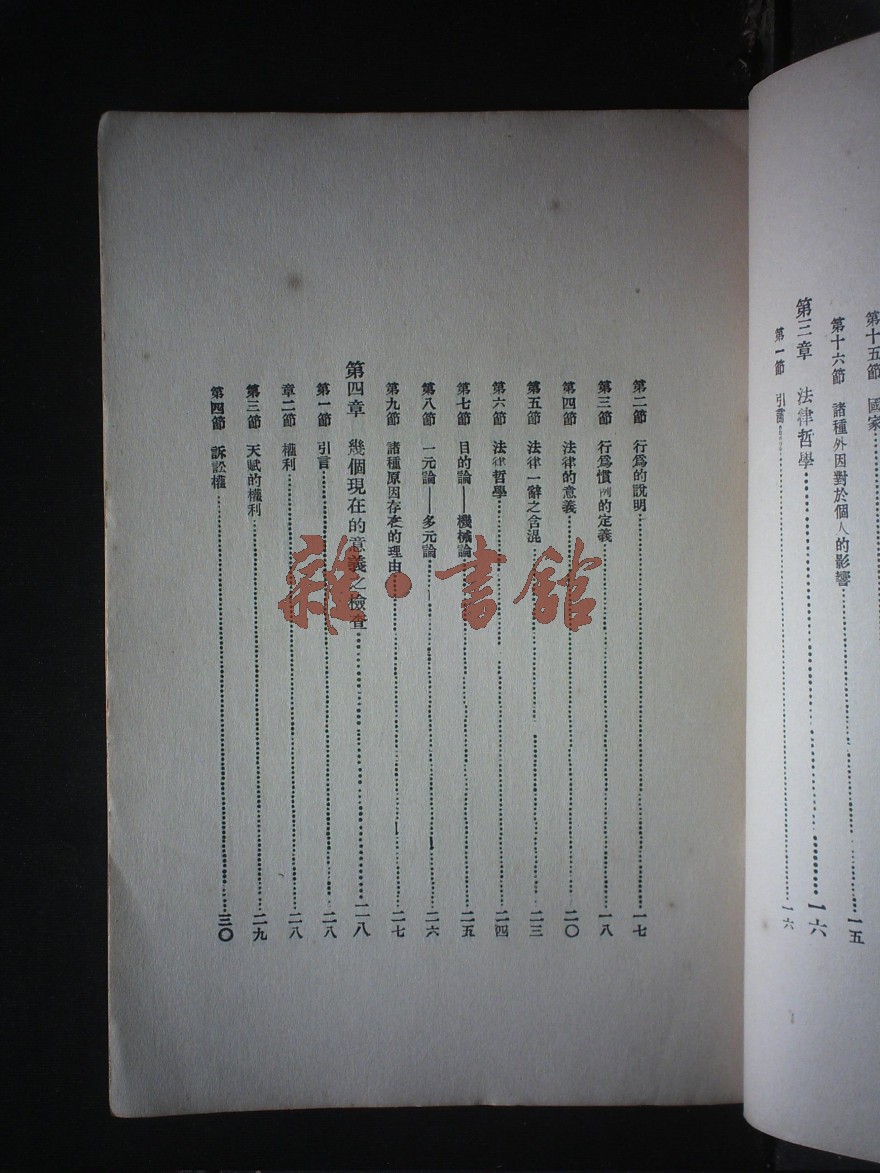 第十五節 國家……一五
第十六節 諸種外因對於個人的影響……一五
第三章 法律哲學……一六
第一節 引言……一六
第二節 行爲的說明……一七
第三節 行爲慣例的定義……一八
第四節 法律的意義……二〇
第五節 法律一辭之含混……二三
第六節 法律哲學……二四
第七節 目的論——機械論……二五
第八節 一元論——多元論……二六
第九節 諸種原因存在的理由……二七
第四章 幾個現在的意義之檢查……二八
第一節 引言……二八
章二節 權利……二八
第三節 天賦的權利……二九
第四節 訴訟權……三〇
雜·書館